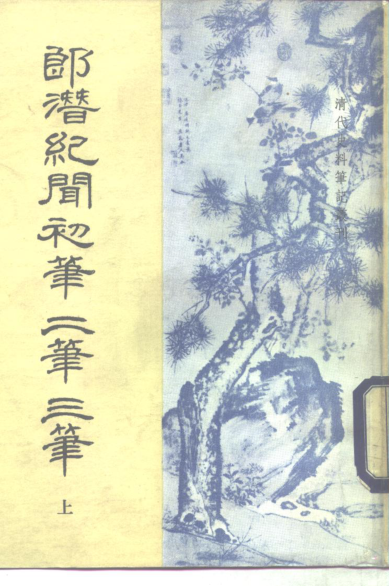 郎潛紀聞初筆二筆三筆
上
清代史料筆記叢刊